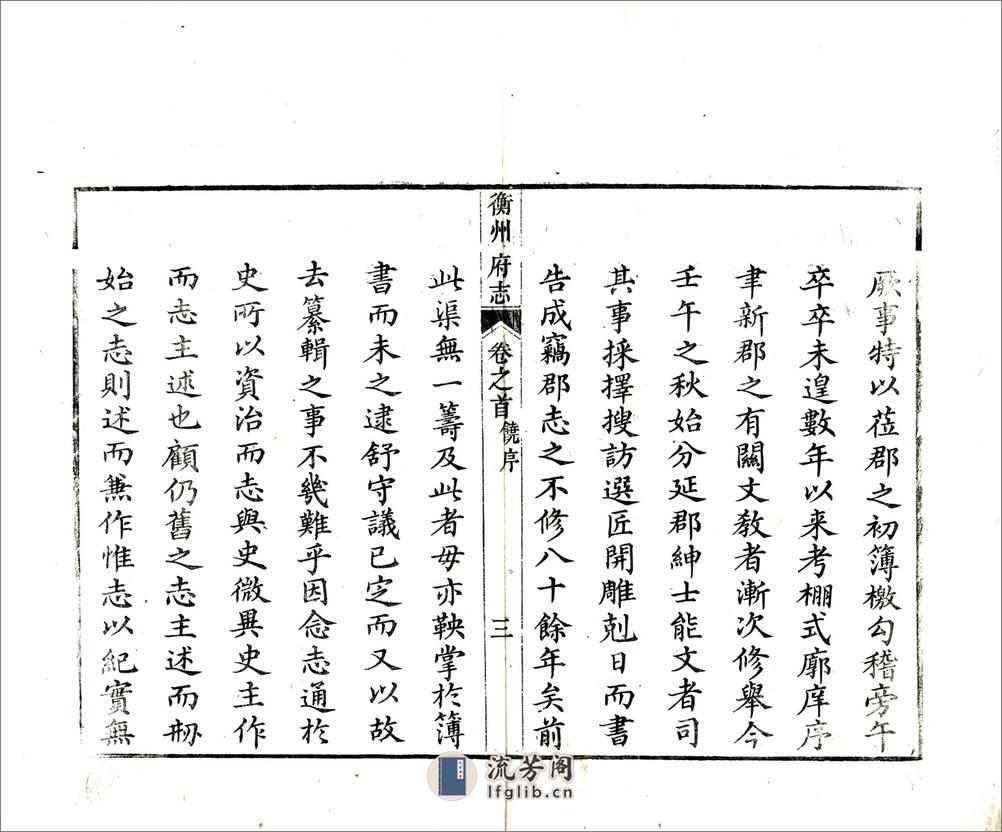 厥事特以莅郡之初簿檄勾稽旁午
卒卒未遑數年以来考棚式廓庠序
聿新郡之有關文教者漸次修舉今
壬午之秋始分延郡紳士能文者司
其事採擇搜訪選匠開雕剋日而書
告成竊郡志之不修八十餘年矣前
衡州府志
卷之首
饒序
三
此渠無一籌及此者毋亦鞅掌於簿
書而未之逮舒守議已定而又以故
去纂輯之事不幾難乎因念志通於
史所以資治而志與史微異史主作
而志主述也顧仍舊之志主述而刱
始之志則述而兼作惟志以紀實無
流芳阁
lfglib.cn